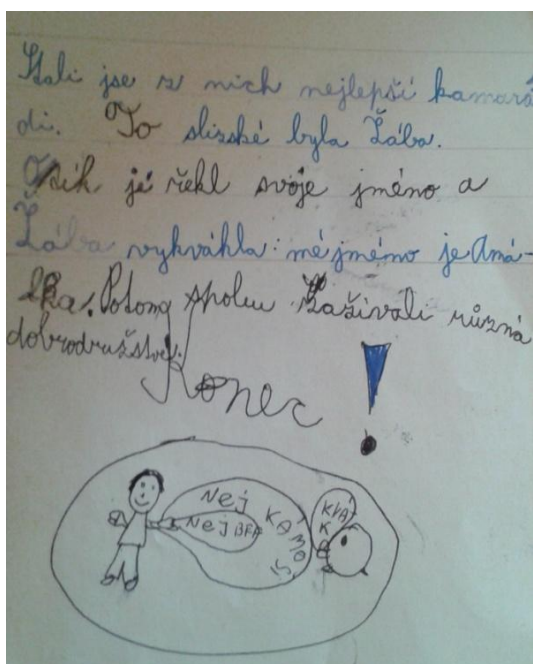 Stali jse z nich nejlepší kamará
di. To slizské byla Žába.
jé řekl svoje jméno a
Žába vykvákla: mé jméno je Amá-
lka. Potom spolu Zažívali různá
dobrodružství.
Konec !
Nej KÁMOŠ
Nej BFF
KVÁ
K